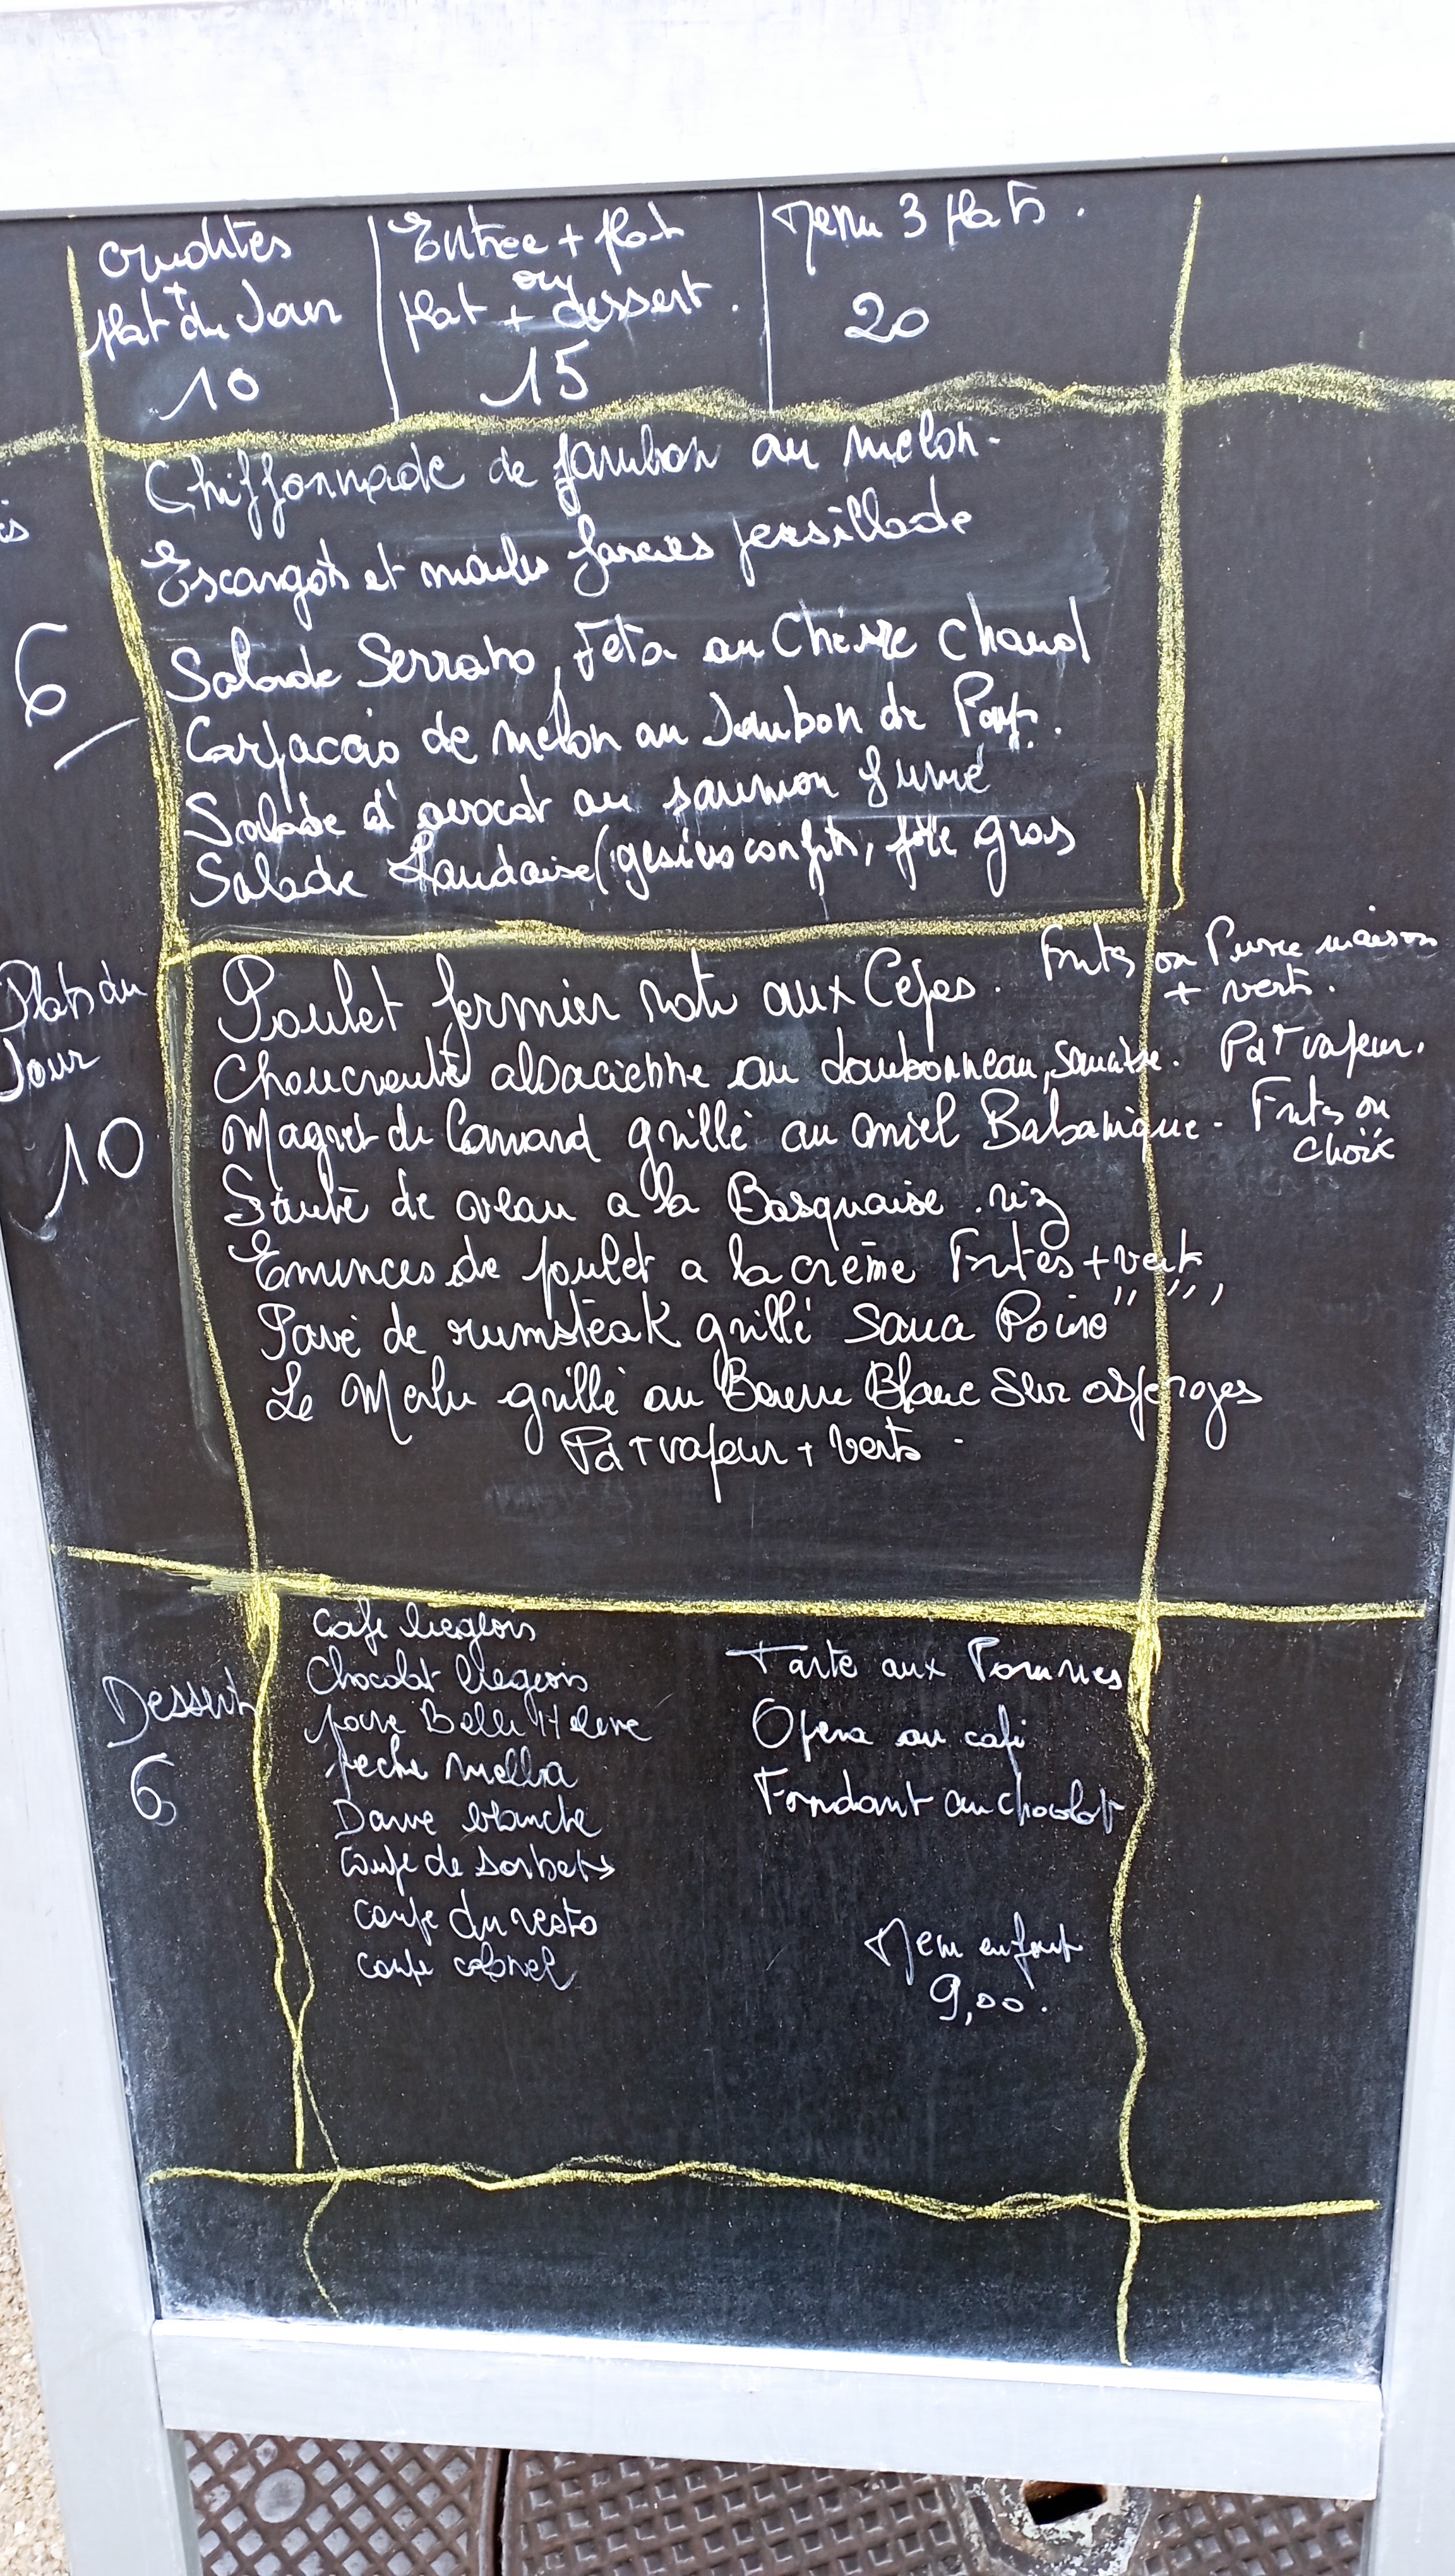 crudités
+
plat du Jour
10
Entree + plat
ou
plat + dessert.
15
Menu 3 plats.
20
is
6
Chiffonnade de jambon au melon.
Escargots et moules farcies persillade
Salade Serrano, Feta ou Chèvre chaud
Carpaccio de melon au Jambon de Pays.
Salade d'avocat au saumon fumé
Salade Landaise (gesiers confits, foie gras
Plats du
Jour
10
Poulet fermier roti aux Cèpes. Frites ou Puree maison
+ verts.
Choucroute alsacienne au Jambonneau, Saucisse. Pdt vapeur.
Magret de Canard grillé au miel Balsamique. Frites ou
choix
Sauté de veau a la Basquaise. riz
Eminces de poulet a la crème Frites + verts
Pavé de rumsteak grillé Sauce Poivre " " "
Le Merlu grillé au Beurre Blanc Sur asperges
Pdt vapeur + verts.
Dessert
6
Cafe liegeois
Chocolat liegeois
poire Belle Helene
peche melba
Dame blanche
coupe de sorbets
coupe du resto
coupe colonel
Tarte aux Pommes
Opera au café
Fondant au chocolat
Menu enfant
9,00.